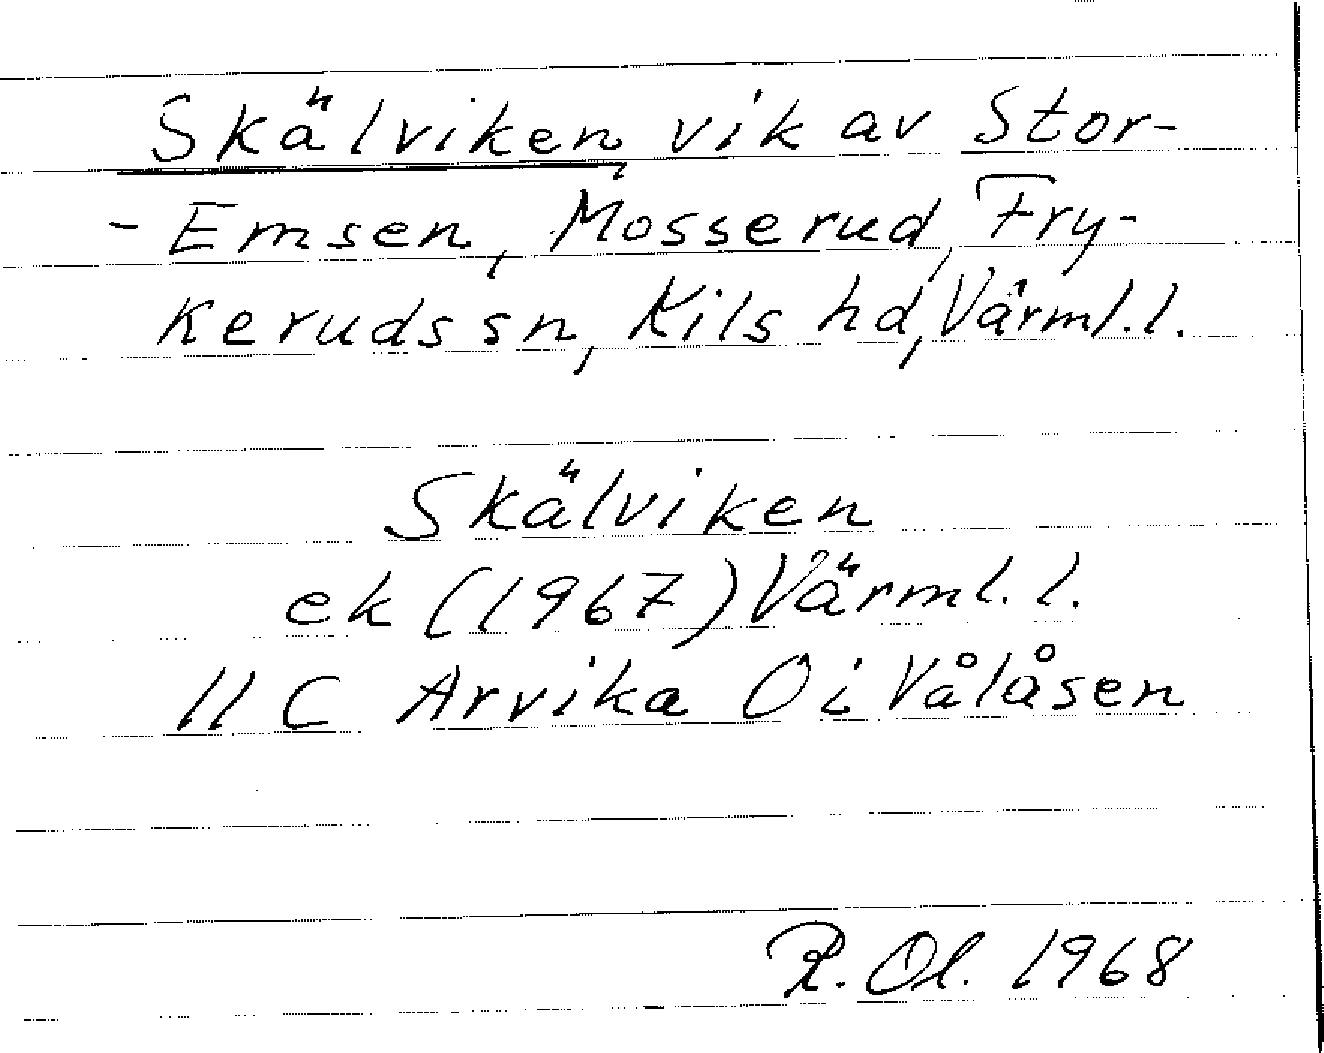 Skälviken, vik av Stor-
- Emsen, Mosserud, Fry-
keruds sn, Kils hd, Värml. l.
Skälviken
ek (1967) Värml. l.
11 C Arvika Ö i Vålåsen
R. Ol. 1968